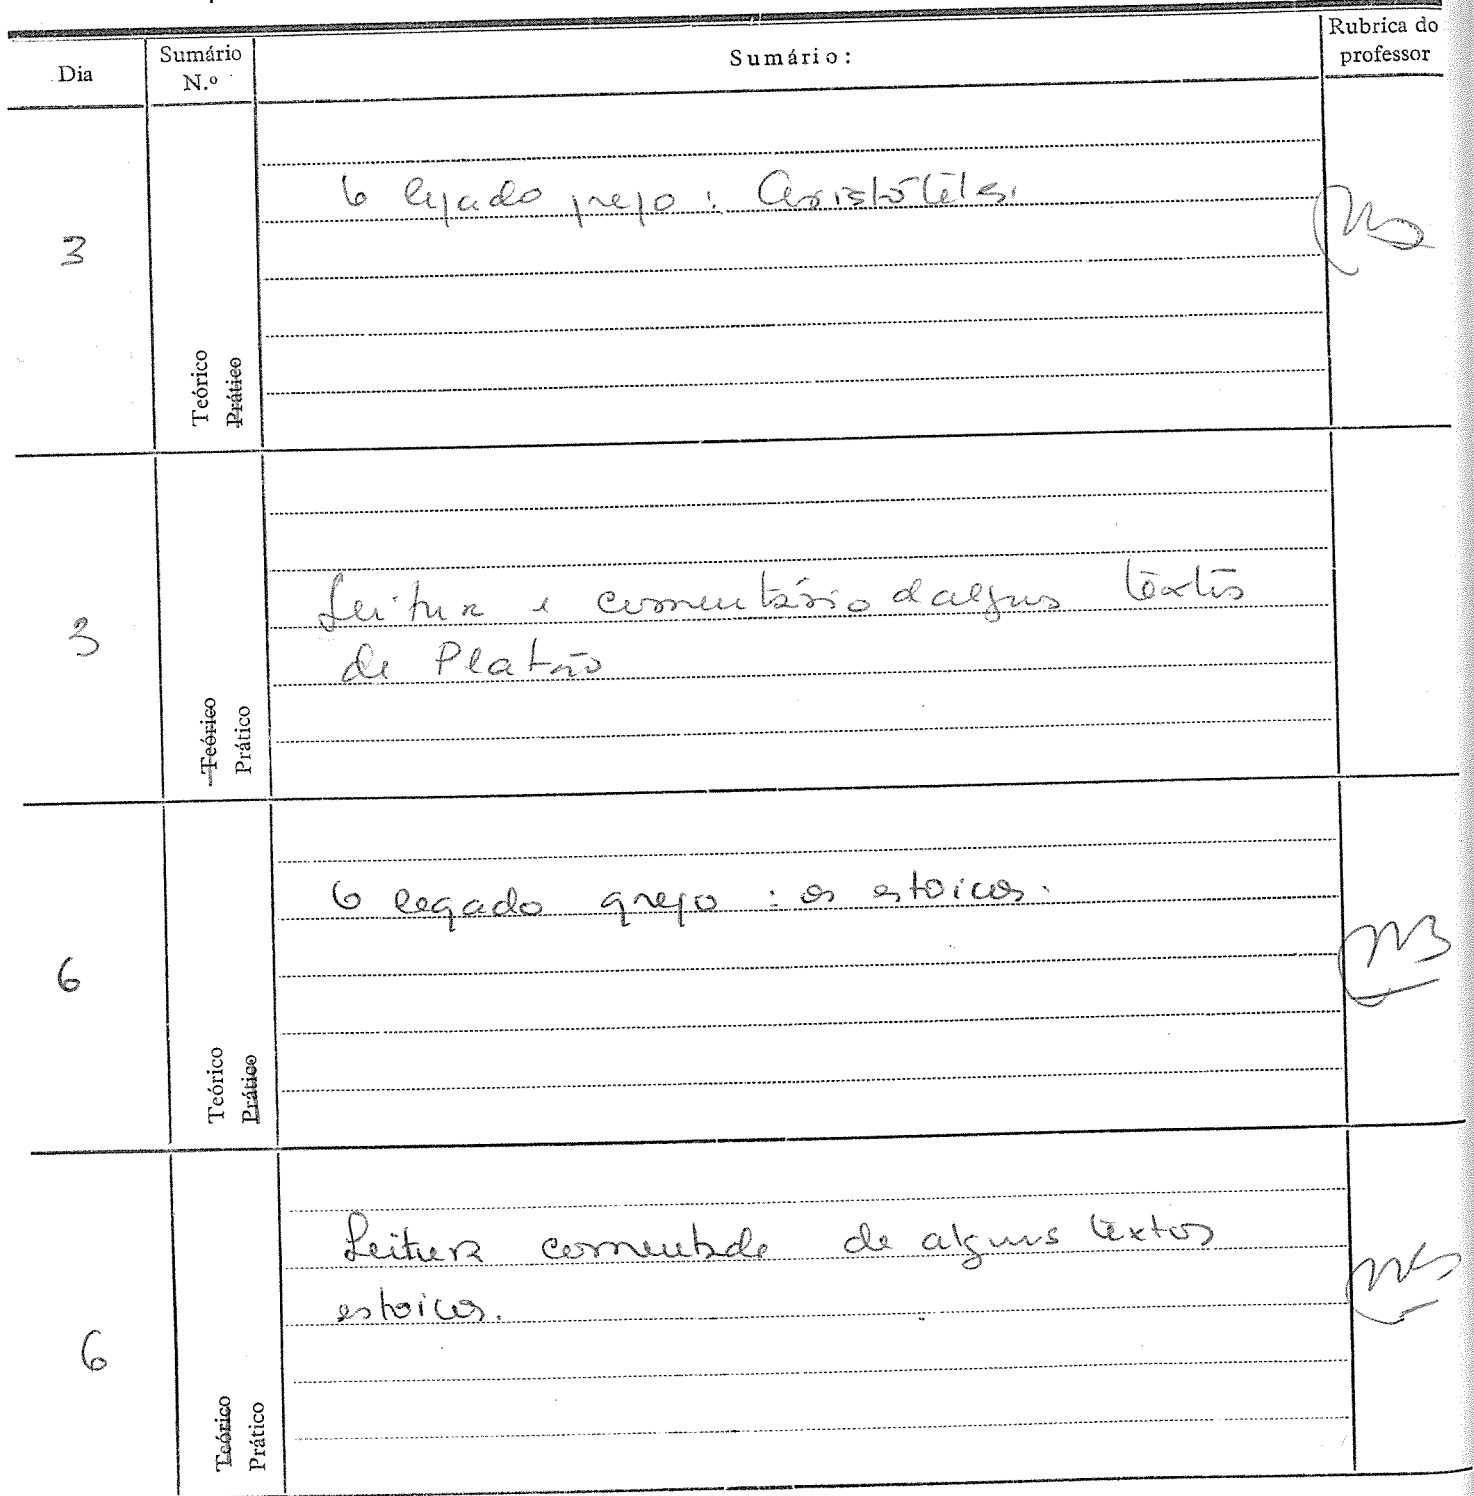 Dia
Sumário N.º
Sumário:
Rubrica do professor
3
Teórico
Prático
O legado grego: Aristóteles.
3
Teórico
Prático
Leitura e comentário dalguns textos
de Platão
6
Teórico
Prático
O legado grego: os estoicos.
6
Teórico
Prático
Leitura comentada de alguns textos
estoicos.